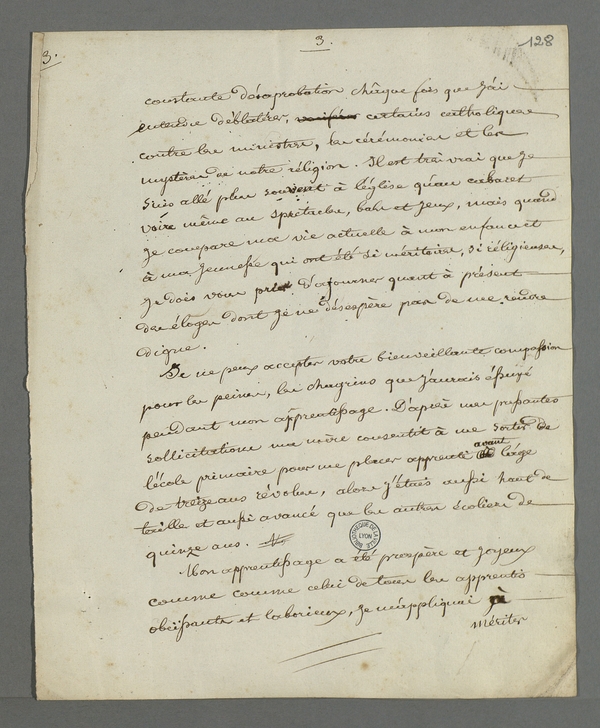 3.
3.
128
constante désaprobation châque fois que j'ai
entendu déblatérer, certains catholiques
contre les ministres, les cérémonies et les
mystères de notre réligion. Il est très vrai que je
suis allé plus souvent à l'église qu'au cabaret
voire même au spectacles, bals et jeux, mais quand
je compare ma vie actuelle à mon enfance et
à ma jeunesse qui ont été si méritoires, si réligieuses,
je dois vous prier d'ajourner quant à présent
des éloges dont je ne désespère pas de me rendre
digne.
Je ne peux accepter votre bienveillante compassion
pour les peines, les chagrins que j'aurais éssuyé
pendant mon apprentissage. D'après mes pressantes
sollicitations ma mère consentit à me sortir de
l'école primaire pour me placer apprenti avant l'âge
de treize ans révolus, alors j'étais aussi haut de
taille et aussi avancé que les autres écoliers de
quinze ans.
Mon apprentissage a été prospère et joyeux
comme comme celui de tous les apprentis
obéissants et laborieux, je m'appliquai à
mériter
BIBLIOTHEQUE DE LA VILLE
LYON